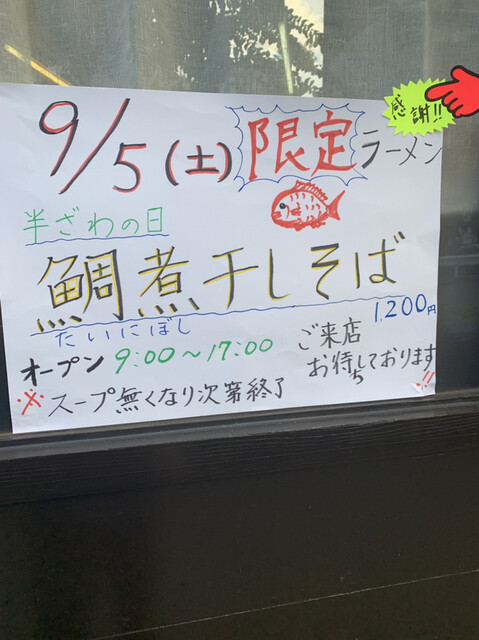 感謝!!
9/5(土) 限定ラーメン
半ざわの日
鯛煮干しそば
たいにぼし
1,200円
オープン 9:00〜17:00
ご来店
お待ちしております!!
※スープ無くなり次第終了